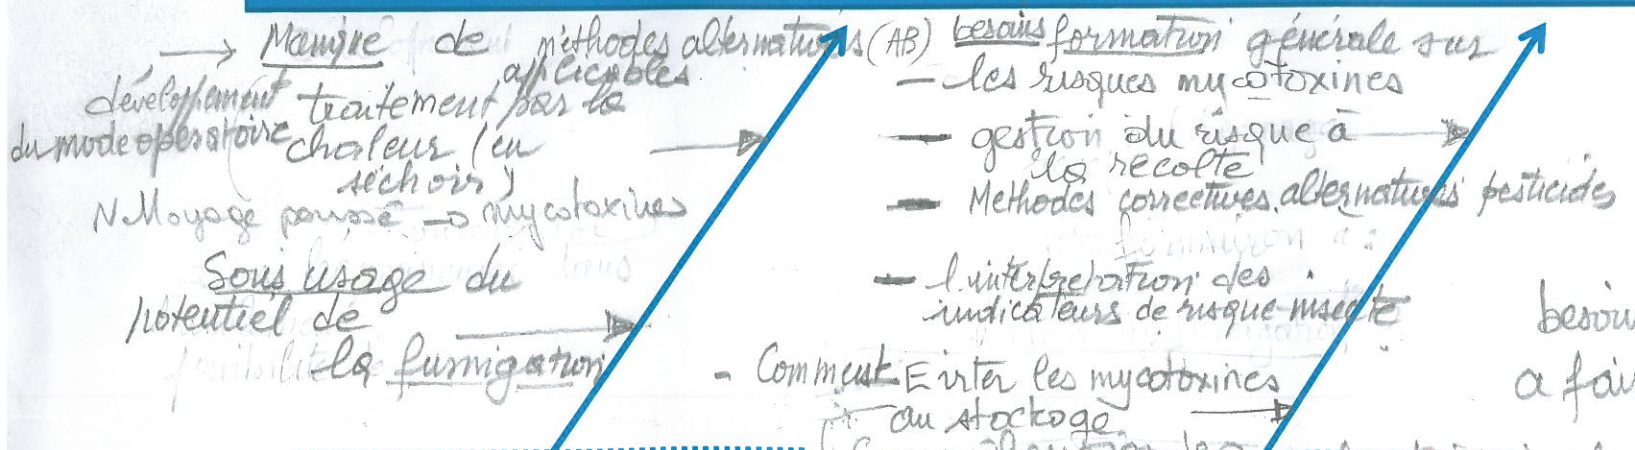 → Manque de méthodes alternatives (AB)
applicables
développement
du mode opératoire
traitement par la
chaleur (en
séchoir)
Nettoyage poussé → mycotoxines
Sous usage du
potentiel de
la fumigation
besoins formation générale sur
- les risques mycotoxines
- gestion du risque à
la récolte
- Méthodes correctives alternatives pesticides
- l'interprétation des
indicateurs de risque insecte
- Comment Eviter les mycotoxines
au stockage
besoin
a fai